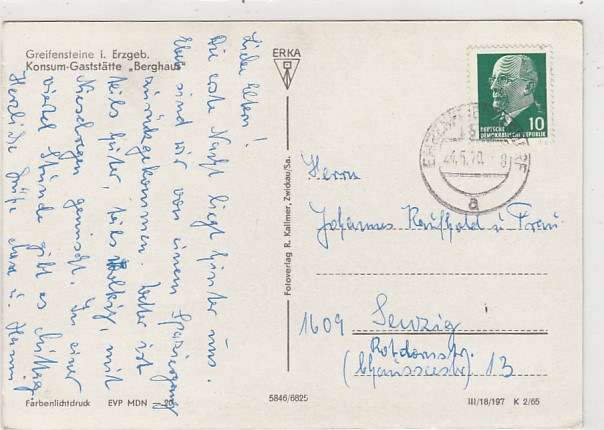 Greifensteine i. Erzgeb.
Konsum-Gaststätte „Berghaus"
Liebe Eltern!
Die erste Nacht liegt hinter uns.
Eben sind wir von einem Spaziergang
zurückgekommen. Wetter ist
teils heiter, teils wolkig, mit
Nieselregen gemischt. In einer
viertel Stunde gibt es Mittag.
Herzliche Grüße u.
Farbenlichtdruck EVP MDN —20
ERKA
Fotoverlag R. Kallmer, Zwickau/Sa.
5846/6825
10
DEUTSCHE
DEMOKRATISCHE REPUBLIK
24.5.70.-8
a
Herrn
Johannes Kauffold u. Frau
1609 Senzig
Rotdornstr.
(Chausseestr) 13
III/18/197 K 2/65